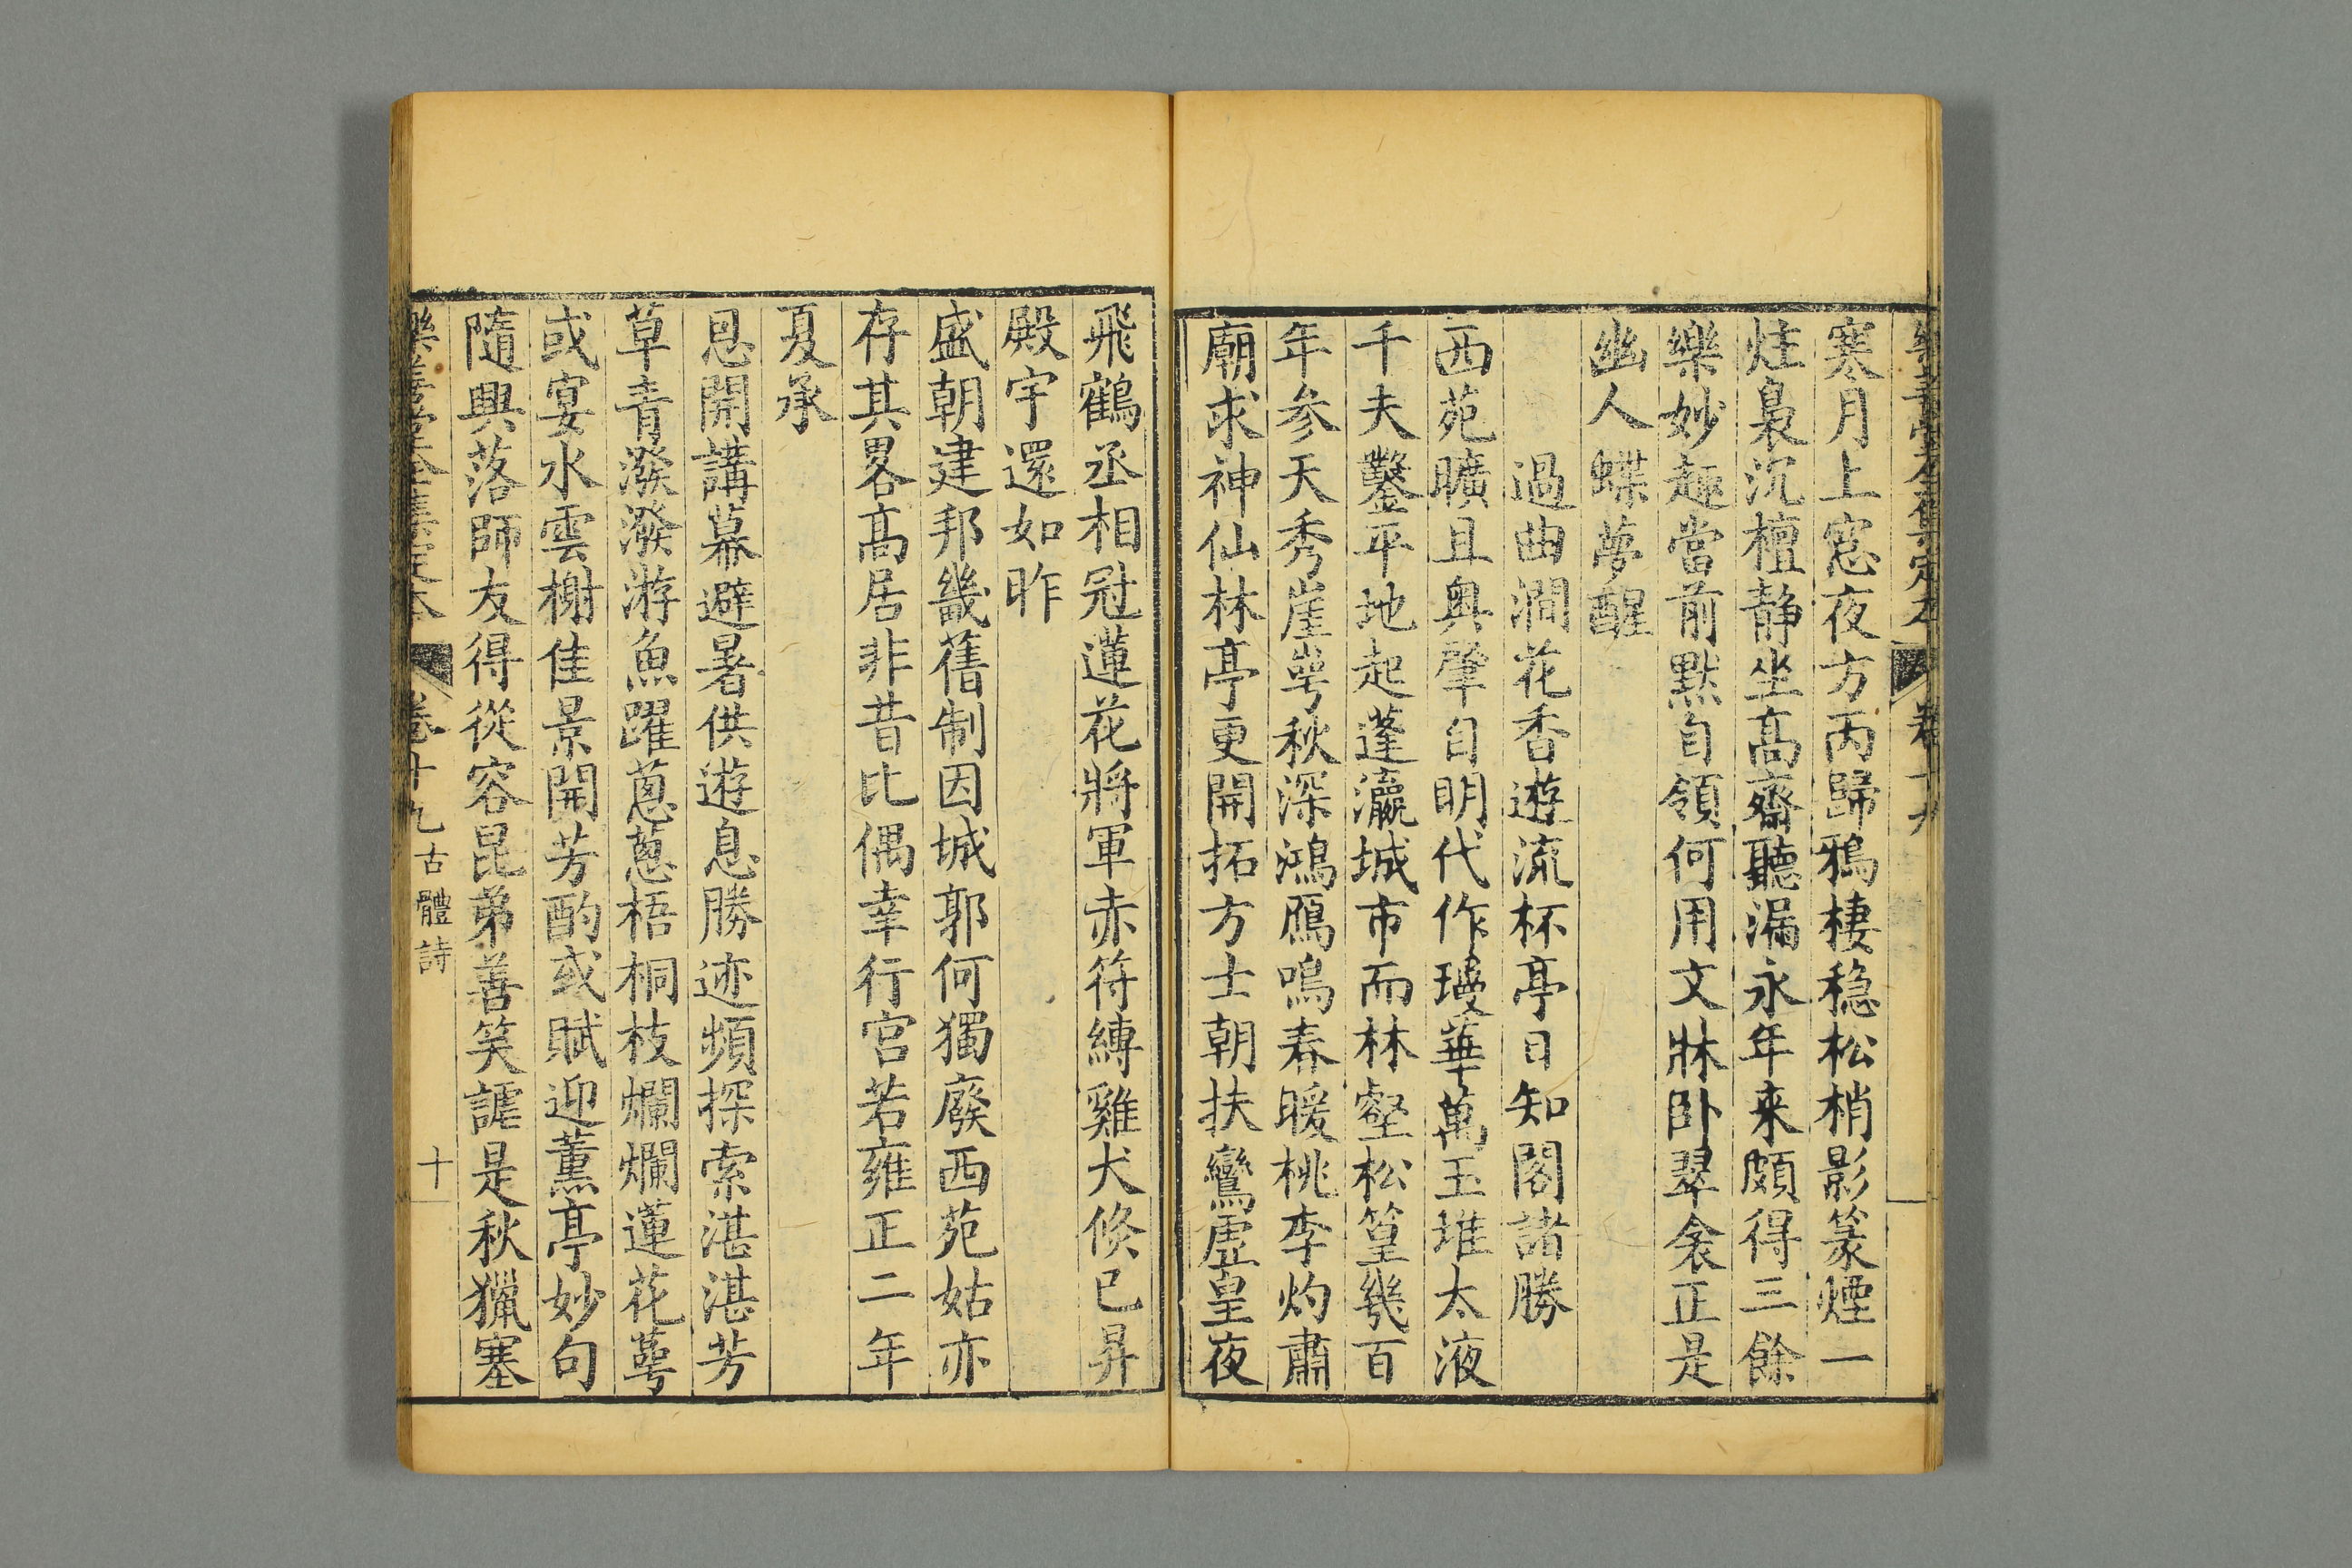 樂善堂全集定本 卷十九
寒月上窓夜方丙歸鴉棲穏松梢影篆煙一
炷裊沉檀静坐髙齋聽漏永年来頗得三餘
樂妙趣當前黙自領何用文牀卧翠衾正是
幽人蝶夢醒
過曲澗花香遊流杯亭日知閣諸勝
西苑曠且奥肇自明代作瓊華萬玉堆太液
千夫鑿平地起蓬瀛城市而林壑松篁幾百
年参天秀崖崿秋深鴻鴈鳴春暖桃李灼肅
廟求神仙林亭更開拓方士朝扶鸞虛皇夜
飛鶴丞相冠蓮花將軍赤符縛雞犬倏已昇
殿宇還如昨
盛朝建邦畿舊制因城郭何獨廢西苑姑亦
存其畧髙居非昔比偶幸行宫若雍正二年
夏承
恩開講幕避暑供遊息勝迹頻探索湛湛芳
草青潑潑游魚躍蔥蔥梧桐枝爛爛蓮花萼
或宴水雲榭佳景開芳酌或賦迎薰亭妙句
隨興落師友得從容昆弟善笑謔是秋獵塞
樂善堂全集定本 卷十九古體詩 十